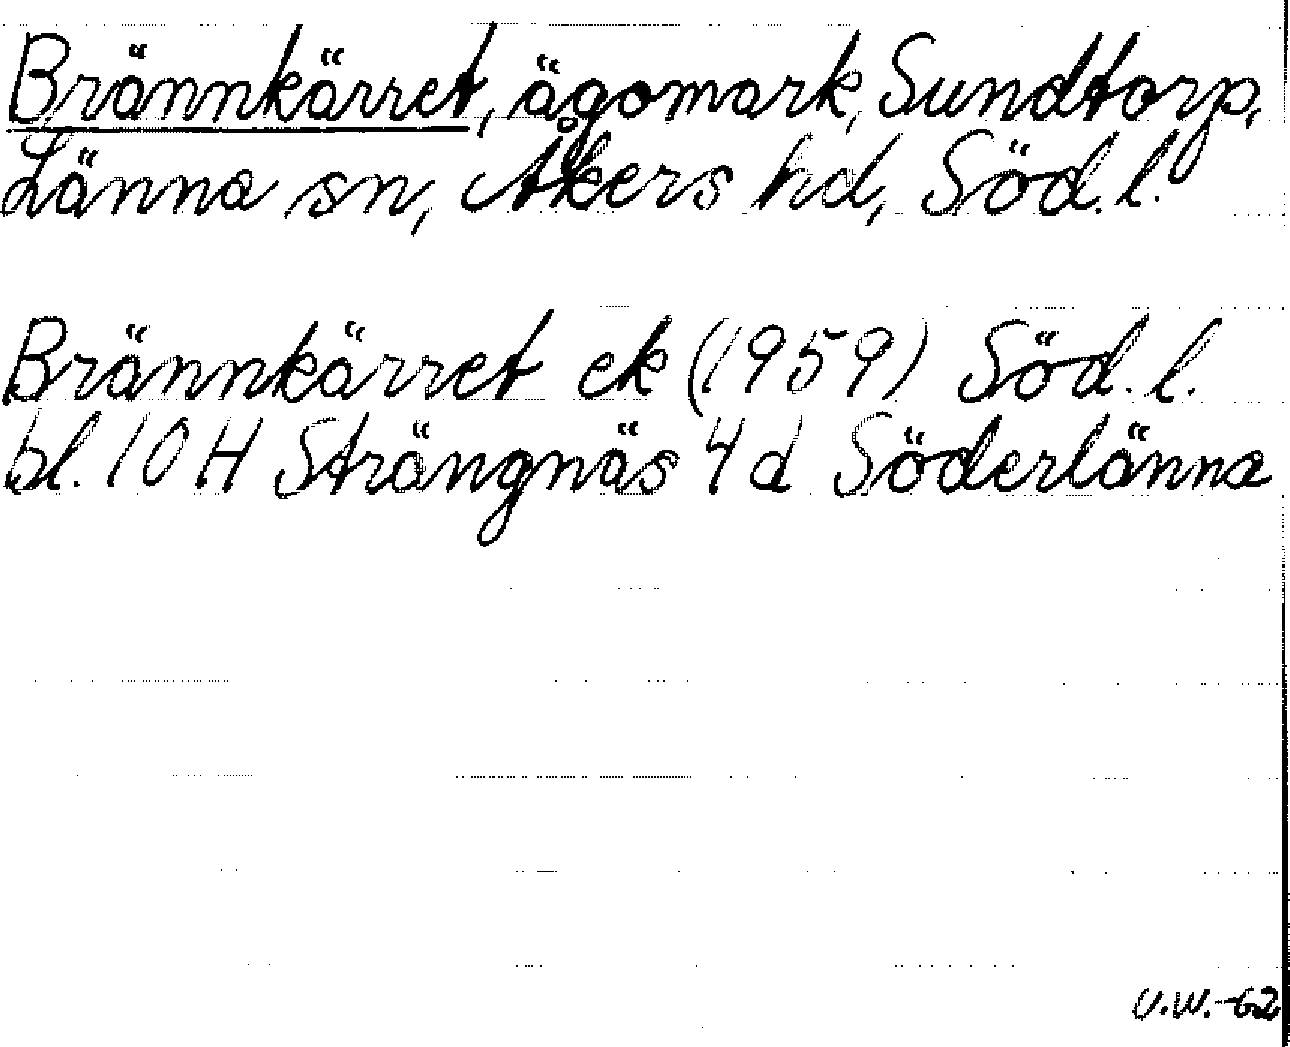 Brännkärret, ägomark, Sundtorp,
Länna sn, Åkers hd, Söd.l.
Brännkärret ek (1959) Söd.l.
bl. 10 H Strängnäs 4 d Söderlänna
U.W.-62